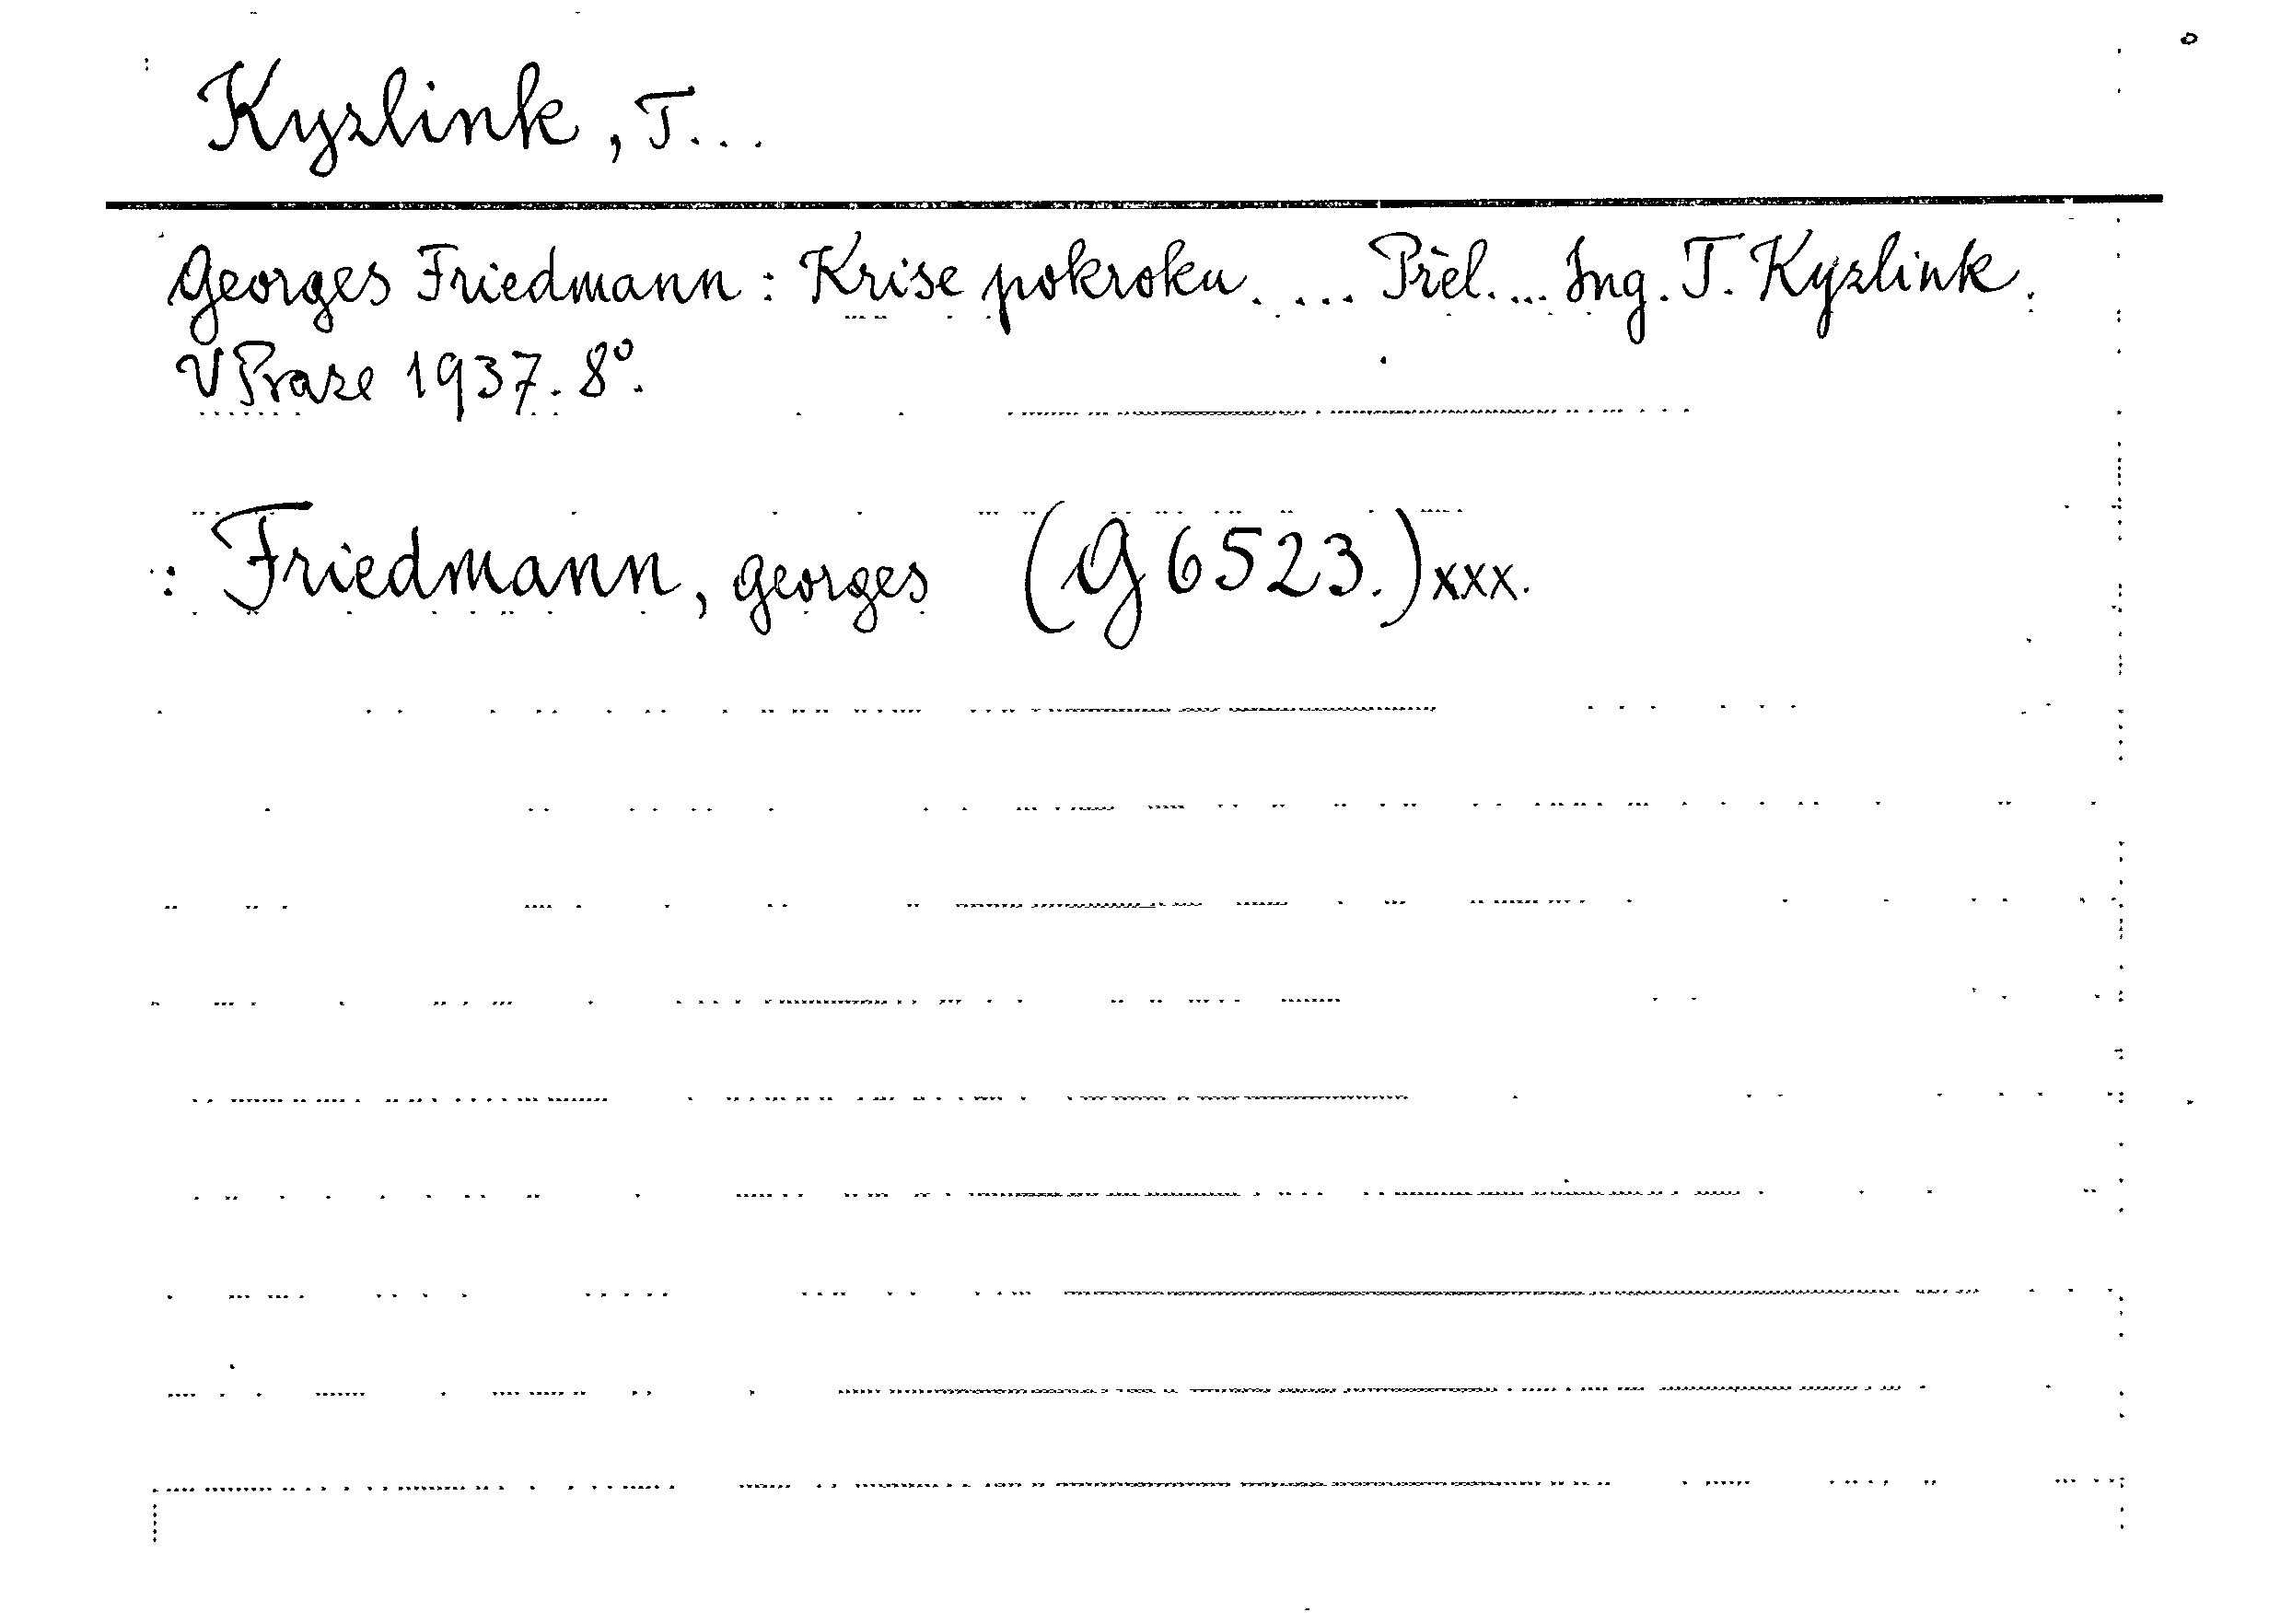 Kyzlink, T...
Georges Friedmann: Krise pokroku. ... Přel. ... Ing. T. Kyzlink.
V Praze 1937. 8°.
: Friedmann, Georges (G 6523.) xxx.